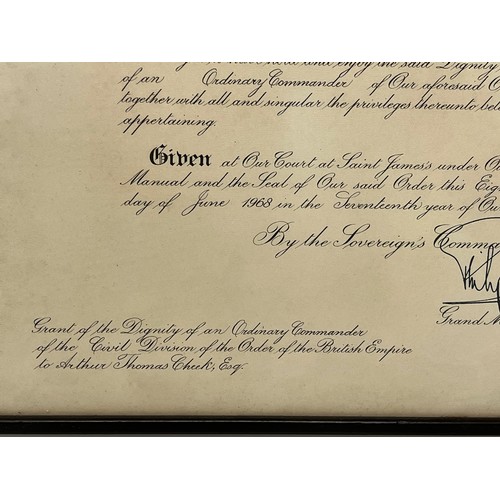 and enjoy the said Dignity
of an Ordinary Commander of Our aforesaid O
together with all and singular the privileges thereunto bel
appertaining.
Given at Our Court at Saint James's under Ou
Manual and the Seal of Our said Order this Eig
day of June 1968 in the Seventeenth year of Ou
By the Sovereign's Comma
Philip
Grand M
Grant of the Dignity of an Ordinary Commander
of the Civil Division of the Order of the British Empire
to Arthur Thomas Cheek, Esq.